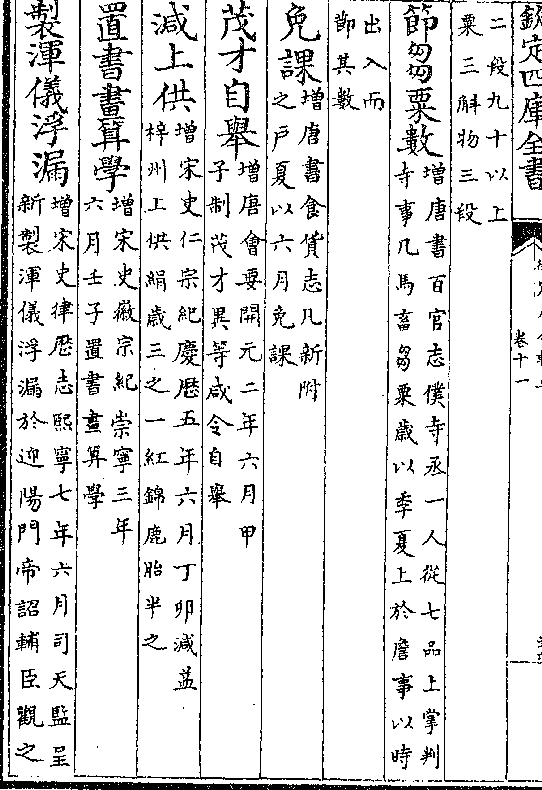 欽定四庫全書
卷十一
二段九十以上
粟三斛物三段
節芻粟數增唐書百官志僕寺丞一人從七品上掌判
寺事凡馬畜芻粟歲以季夏上於詹事以時
出入而
節其數
免課增唐書食貨志凡新附
之戶夏以六月免課
茂才自舉增唐會要開元二年六月甲
子制茂才異等咸令自舉
減上供增宋史仁宗紀慶歷五年六月丁卯減益
梓州上供絹歲三之一紅錦鹿胎半之
置書畫算學增宋史徽宗紀崇寧三年
六月壬子置書畫算學
製渾儀浮漏增宋史律歷志熙寧七年六月司天監呈
新製渾儀浮漏於迎陽門帝詔輔臣觀之